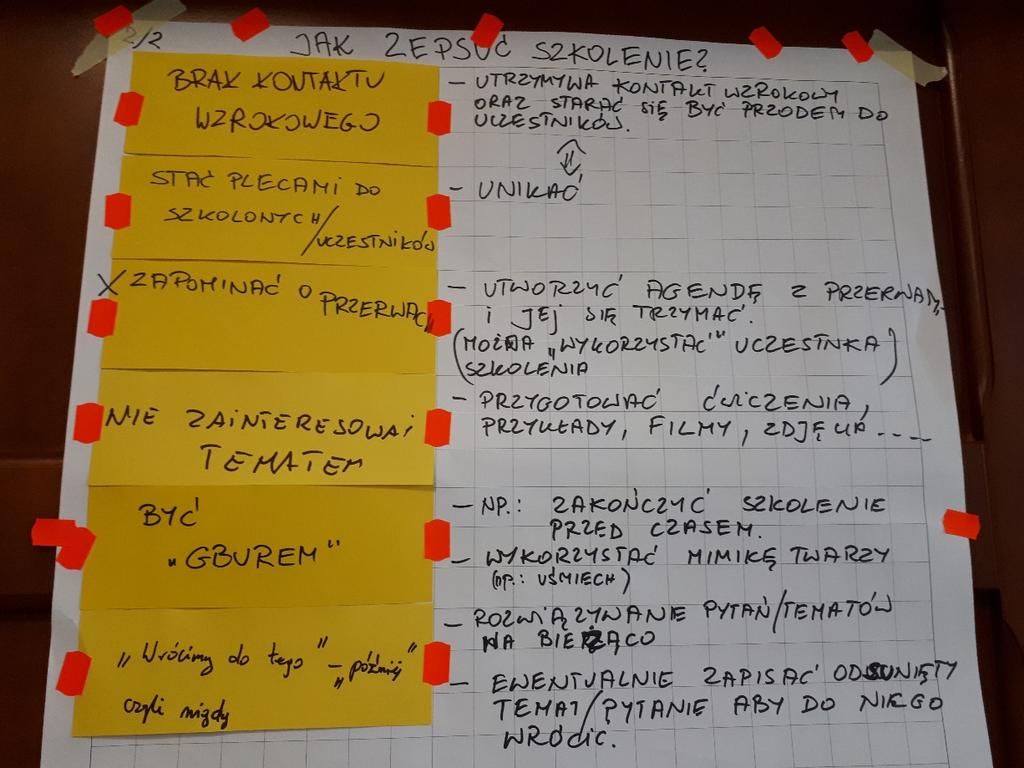 2/2
JAK ZEPSUĆ SZKOLENIE?
BRAK KONTAKTU
WZROKOWEGO
- UTRZYMYWA KONTAKT WZROKOWY
ORAZ STARAĆ SIĘ BYĆ PRZODEM DO
UCZESTNIKÓW.
STAĆ PLECAMI DO
SZKOLONYCH/
UCZESTNIKÓW
- UNIKAĆ
X ZAPOMINAĆ O
PRZERWAC"
- UTWORZYĆ AGENDĘ Z PRZERWAMI
I JEJ SIĘ TRZYMAĆ.
(MOŻNA „WYKORZYSTAĆ" UCZESTNKA
SZKOLENIA)
NIE ZAINTERESOWAĆ
TEMATEM
- PRZYGOTOWAĆ ĆWICZENIA,
PRZYKŁADY, FILMY, ZDJĘCIA ....
BYĆ
„GBUREM"
- NP.: ZAKOŃCZYĆ SZKOLENIE
PRZED CZASEM.
- WYKORZYSTAĆ MIMIKĘ TWARZY
(NP.: UŚMIECH)
„Wrócimy do tego" - „później"
czyli nigdy
- ROZWIĄZYWANIE PYTAŃ/TEMATÓW
NA BIEŻĄCO
- EWENTUALNIE ZAPISAĆ ODSUNIĘTY
TEMAT/PYTANIE ABY DO NIEGO
WRÓCIĆ.